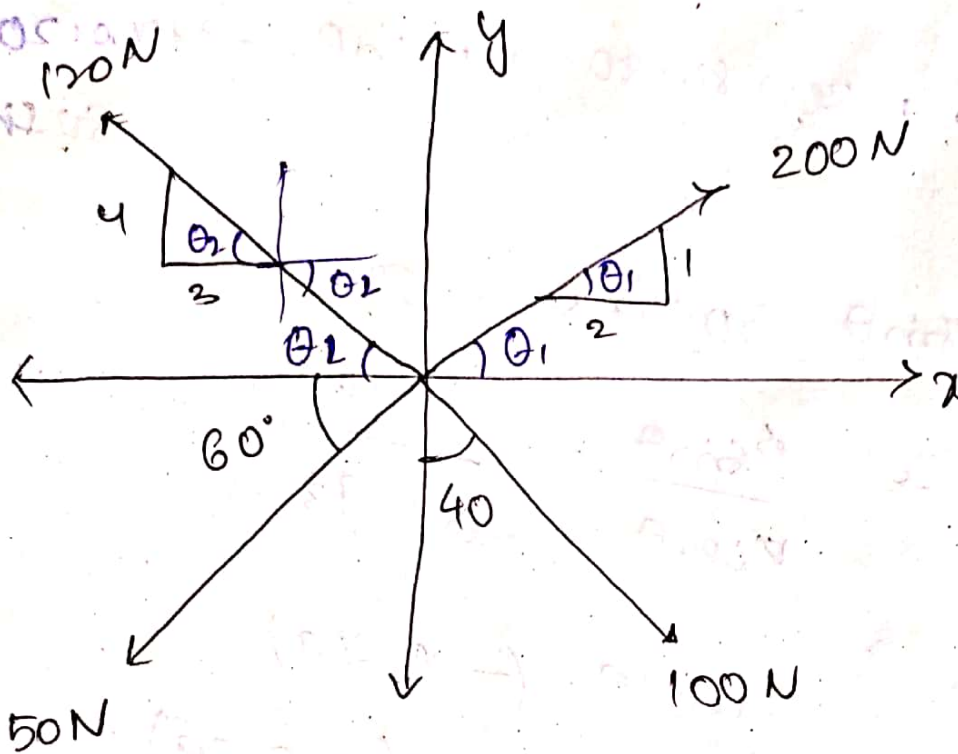 y
120N
200N
4
θ2
3
θ2
θ1
1
2
θ2
θ1
x
60°
40
50N
100N